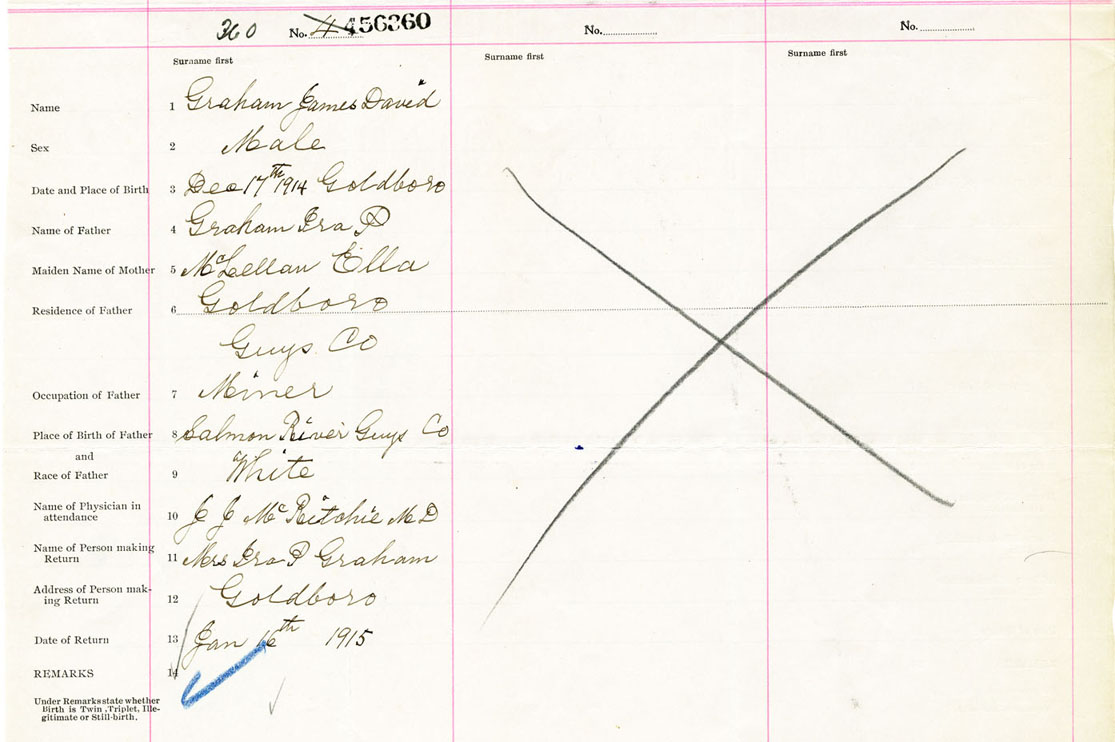 360 No. 456360 No. No.
Surname first Surname first Surname first
Name 1 Graham James David
Sex 2 Male
Date and Place of Birth 3 Dec 17th 1914 Goldboro
Name of Father 4 Graham Ira P
Maiden Name of Mother 5 McLellan Ella
Residence of Father 6 Goldboro
Guys Co
Occupation of Father 7 Miner
Place of Birth of Father 8 Salmon River Guys Co
and
Race of Father 9 White
Name of Physician in
attendance 10 J J McRitchie M D
Name of Person making
Return 11 Mrs Ira P Graham
Address of Person mak-
ing Return 12 Goldboro
Date of Return 13 Jan 16th 1915
REMARKS 14
Under Remarks state whether
Birth is Twin, Triplet, Ille-
gitimate or Still-birth.